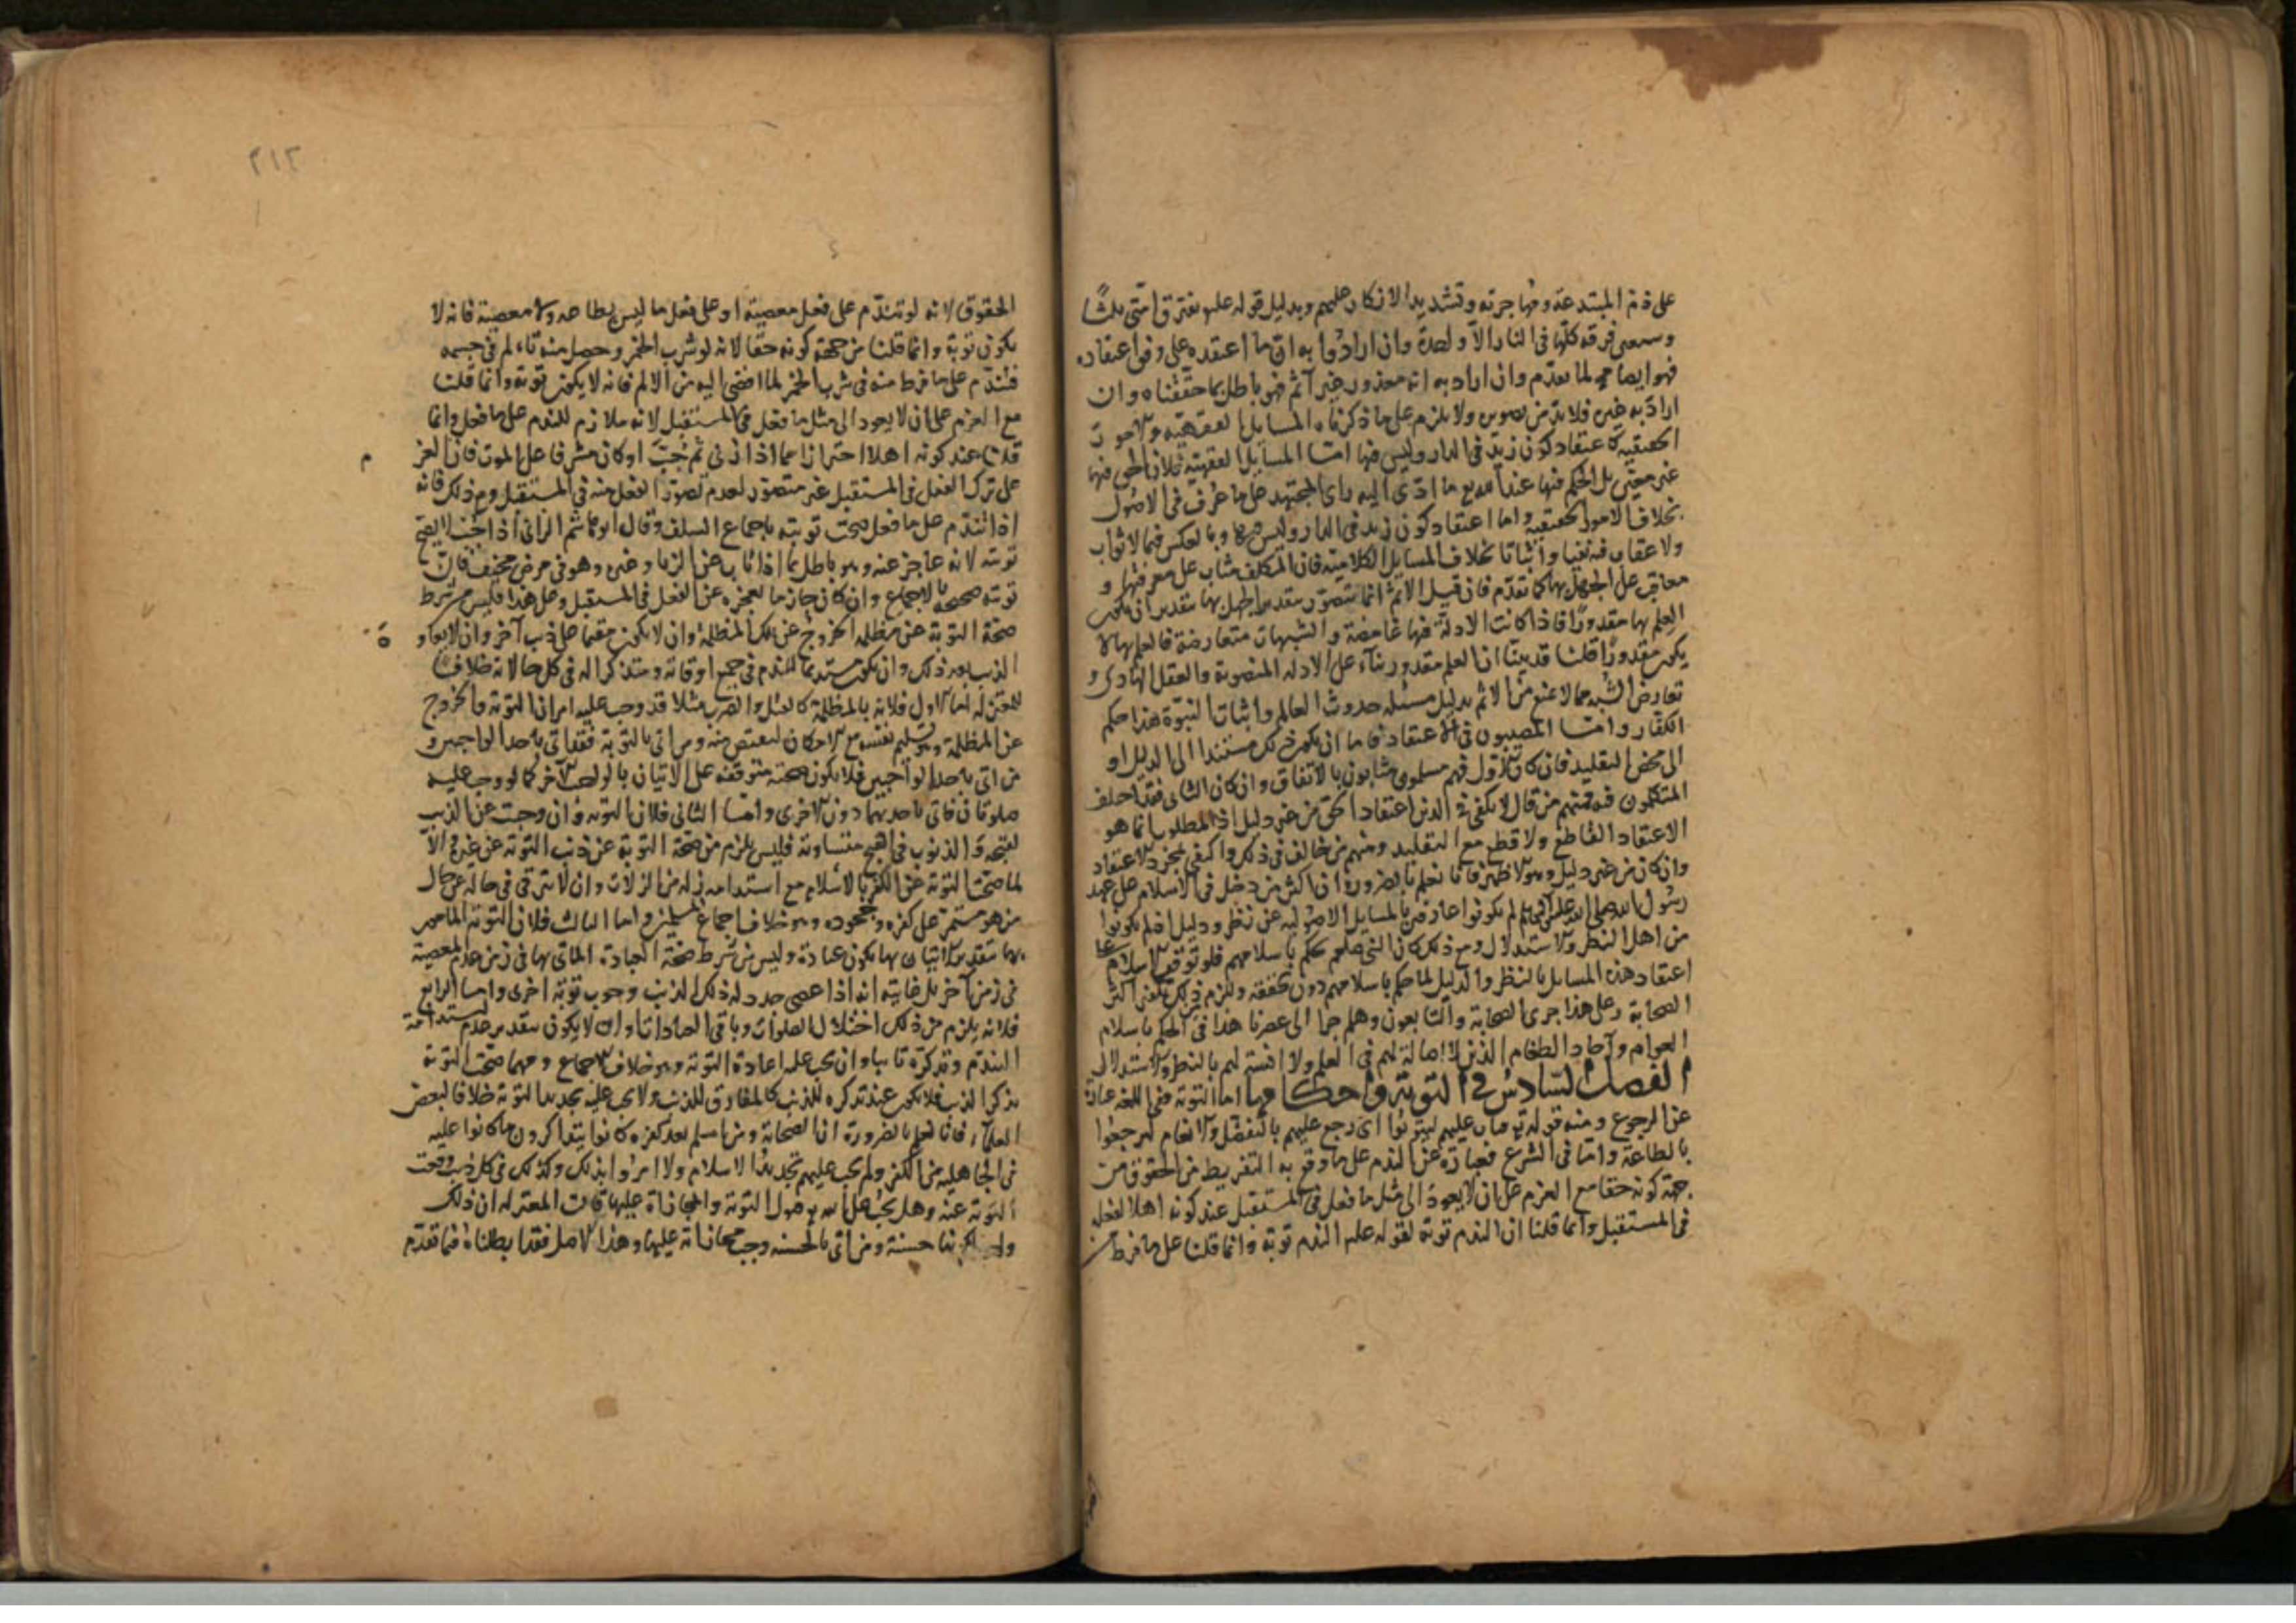 على ذم المبتدعة ومهاجرته وتشديد الانكار عليهم وبدليل قوله علم تفترق امتى ثلثا
وسبعين فرقه كلها فى النار الا واحدة وان ارادوا به ان ما اعتقده على وفق اعتقاده
فهو ايضا لما تقدم وان اراد به انه معذور غير آثم فهو باطل بما حققناه وان
اراد به غيره فلا بد من تصويره ولا يلزم على ما ذكرناه المسايل الفقهيه والامور
الحقيقيه كاعتقاد كون زيد فى الدار وليس فيها امتا المسايل الفقهيه فلان الحق فيها
غير معين بل الحكم فيها عند الله مع ما ادى اليه راى المجتهد على ما عرف فى الاصول
بخلاف الامور الحقيقيه واما اعتقاد كون زيد فى الدار وليس فيها وبالعكس فمما لا ثواب
ولا عقاب فيه نفيا واثباتا بخلاف المسايل الكلاميه فان المكلف مثاب على معرفتها و
معاقب على الجهل بها كما تقدم فان قيل الاثم انما يتصور بتقدير الجهل بها بتقدير ان يكون
العلم بها مقدورا فاذا كانت الادلة فيها غامضة والشبهات متعارضة فالعلم بها لا
يكون مقدورا قلنا قد بينا ان العلم مقدور بناء على الادله المنصوبة والعقل الهادى و
تعارض الشبه مما لا يمنع من الاثم بدليل مسئله حدوث العالم واثبات النبوة هذا حكم
الكفار وامتا المصيبون فى الاعتقاد فاما ان يكون ذلك مستندا الى الدليل او
الى محض التقليد فان كان الاول فهم مسلمون مثابون بالاتفاق وان كان الثانى فقد اختلف
المتكلمون فيه فمنهم من قال لا يكفى فى الدين اعتقاد الحق من غير دليل اذ المطلوب انما هو
الاعتقاد القاطع ولا قطع مع التقليد ومنهم من خالف فى ذلك واكتفى بمجرد الاعتقاد
وان كان من غير دليل وهو الاظهر فانا نعلم بالضرورة ان اكثر من دخل فى الاسلام على عهد
رسول الله صلى الله عليه لم يكونوا عارفين بالمسايل الاصوليه عن نظر ودليل اذ لم يكونوا
من اهل النظر والاستدلال ومع ذلك كان النبى صلعم يحكم باسلامهم فلو توقف الاسلام على
اعتقاد هذه المسايل بالنظر والدليل لما حكم باسلامهم دون تحققه ولزم من ذلك تكفير اكثر
الصحابة وعلى هذا جرى الصحابة والتابعون وهلم جرا الى عصرنا هذا فى الحكم باسلام
العوام وآحاد الطغام الذين لا اصالة لهم فى العلم ولا انسة لهم بالنظر والاستدلال
الفصل السادس فى التوبة واحكامها اما التوبة ففى اللغه عبارة
عن الرجوع ومنه قوله ثم تاب عليهم ليتوبوا اى رجع عليهم بالتفضل والانعام ليرجعوا
بالطاعة واما فى الشرع فعبارة عن الندم على ما وقع به التفريط من الحقوق من
جهة كونه حقا مع العزم على ان لا يعود الى مثل ما فعل فى المستقبل عند كونه اهلا لفعله
فى المستقبل وانما قلنا ان الندم توبة لقوله علم الندم توبة وانما قلنا على ما فرط من
٢١٢
الحقوق لانه لو تندم على فعل معصية او على فعل ما ليس بطاعه ولا معصية فانه لا
يكون توبة وانما قلنا من جهة كونه حقا لانه لو شرب الخمر وحصل منه تألم فى جسمه
فتندم على ما فرط منه فى شرب الخمر لما افضى اليه من الالم فانه لا يكون توبة وانما قلنا
مع العزم على ان لا يعود الى مثل ما فعل فى المستقبل لانه ملازم للندم على ما فعل وانما
قلنا عند كونه اهلا احترازا عما اذا زنى ثم جب او كان مشرفا على الموت فان العزم
على ترك الفعل فى المستقبل غير متصور لعدم تصور الفعل منه فى المستقبل ومع ذلك فانه
اذا تندم على ما فعل صحت توبته باجماع السلف وقال ابو هاشم الزانى اذا جب لا يصح
توبته لانه عاجز عنه وهو باطل بما اذا تاب عن الزنا وغيره وهو فى مرض مخيف فان
توبته صحيحه بالاجماع وان كان جازما بعجزه عن الفعل فى المستقبل وعلى هذا فليس من شرط
صحة التوبة عن مظلمه الخروج عن تلك المظلمة وان لا يكون مقيما على ذنب آخر وان لا يعاود
الذنب بعد ذلك وان يكون مستديما للندم فى جميع اوقاته ومتذكرا له فى كل حالاته خلافا
للمعتزله اما الاول فلانه بالمظلمة كالقتل والضرب مثلا قد وجب عليه امران التوبة والخروج
عن المظلمة وهو تسليم نفسه مع الامكان ليقتص منه ومن اتى بالتوبة فقد اتى باحد الواجبين و
من اتى باحد الواجبين فلا يكون صحته متوقفه على الاتيان بالواجب الآخر كما لو وجب عليه
صلوتان فاتى باحديهما دون الاخرى وامتا الثانى فلان التوبه وان وجبت عن الذنب
لقبحه والذنوب فى القبح متساوية فليس يلزم من صحة التوبة عن ذنب التوبة عن غيره والا
لما صحت التوبة عن الكفر بالاسلام مع استدامه زلة من الزلات وان لا يترقى فى حاله عن حال
من هو مستمر على كفره وجحوده وهو خلاف اجماع المسلمين واما الثالث فلان التوبة الماضى
بها بتقدير الاتيان بها يكون عبادة وليس من شرط صحة العبادة الماتى بها فى زمن عدم المعصية
فى زمن آخر بل غايته انه اذا عصى جدد له ذلك الذنب وجوب توبة اخرى واما الرابع
فلانه يلزم من ذلك اختلال الصلوات وباقى العبادات او ان لا يكون بتقدير عدم استدامة
الندم وتذكره تائبا وان يجب عليه اعادة التوبة وهو خلاف الاجماع ومهما صحت التوبة
ثم تذكر الذنب فلا يكون عند تذكره للذنب كالمفارق للذنب ولا يجب عليه تجديد التوبة خلافا لبعض
العلماء فانا نعلم بالضرورة ان الصحابة ومن اسلم بعد كفره كانوا يتذاكرون ما كانوا عليه
فى الجاهليه من الكفر ولم يجب عليهم تجديد الاسلام ولا امروا بذلك وكذلك فى كل ذنب وقعت
التوبة عنه وهل يجب على الله قبول التوبة والمجازاة عليها قالت المعتزله ان ذلك
حسنة ومن اتى بالحسنه وجب مجازاته عليها وهذا الاصل فقد ابطلناه فيما تقدم